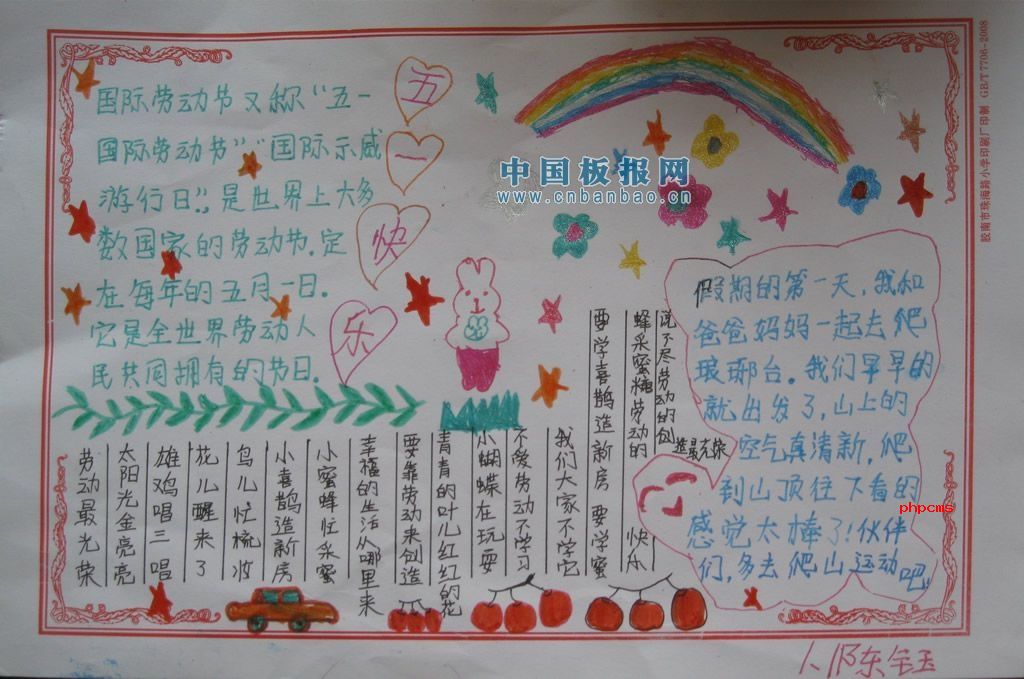 国际劳动节又称“五一
国际劳动节”“国际示威
游行日”,是世界上大多
数国家的劳动节.定
在每年的五月一日.
它是全世界劳动人
民共同拥有的节日.
五
一
快
乐
中国板报网
www.cnbanbao.cn
劳动最光荣
太阳光金亮亮
雄鸡唱三唱
花儿醒来了
鸟儿忙梳妆
小喜鹊造新房
小蜜蜂忙采蜜
幸福的生活从哪里来
要靠劳动来创造
青青的叶儿红红的花
小蝴蝶在玩耍
不爱劳动不学习
我们大家不学它
要学喜鹊造新房 要学蜜
蜂采蜜糖劳动的 快乐
说不尽劳动的创
造最光荣
假期的第一天,我和
爸爸妈妈一起去爬
琅琊台。我们早早的
就出发了,山上的
空气真清新,爬
到山顶往下看的
感觉太棒了!伙伴
们,多去爬山运动
吧
phpcms
胶南市珠海路小学印刷厂印制 GB/T7706-2008